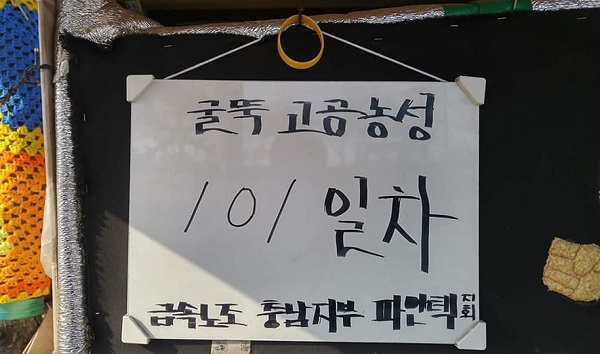 굴뚝 고공농성
101 일차
금속노조 충남지부 파인텍지회